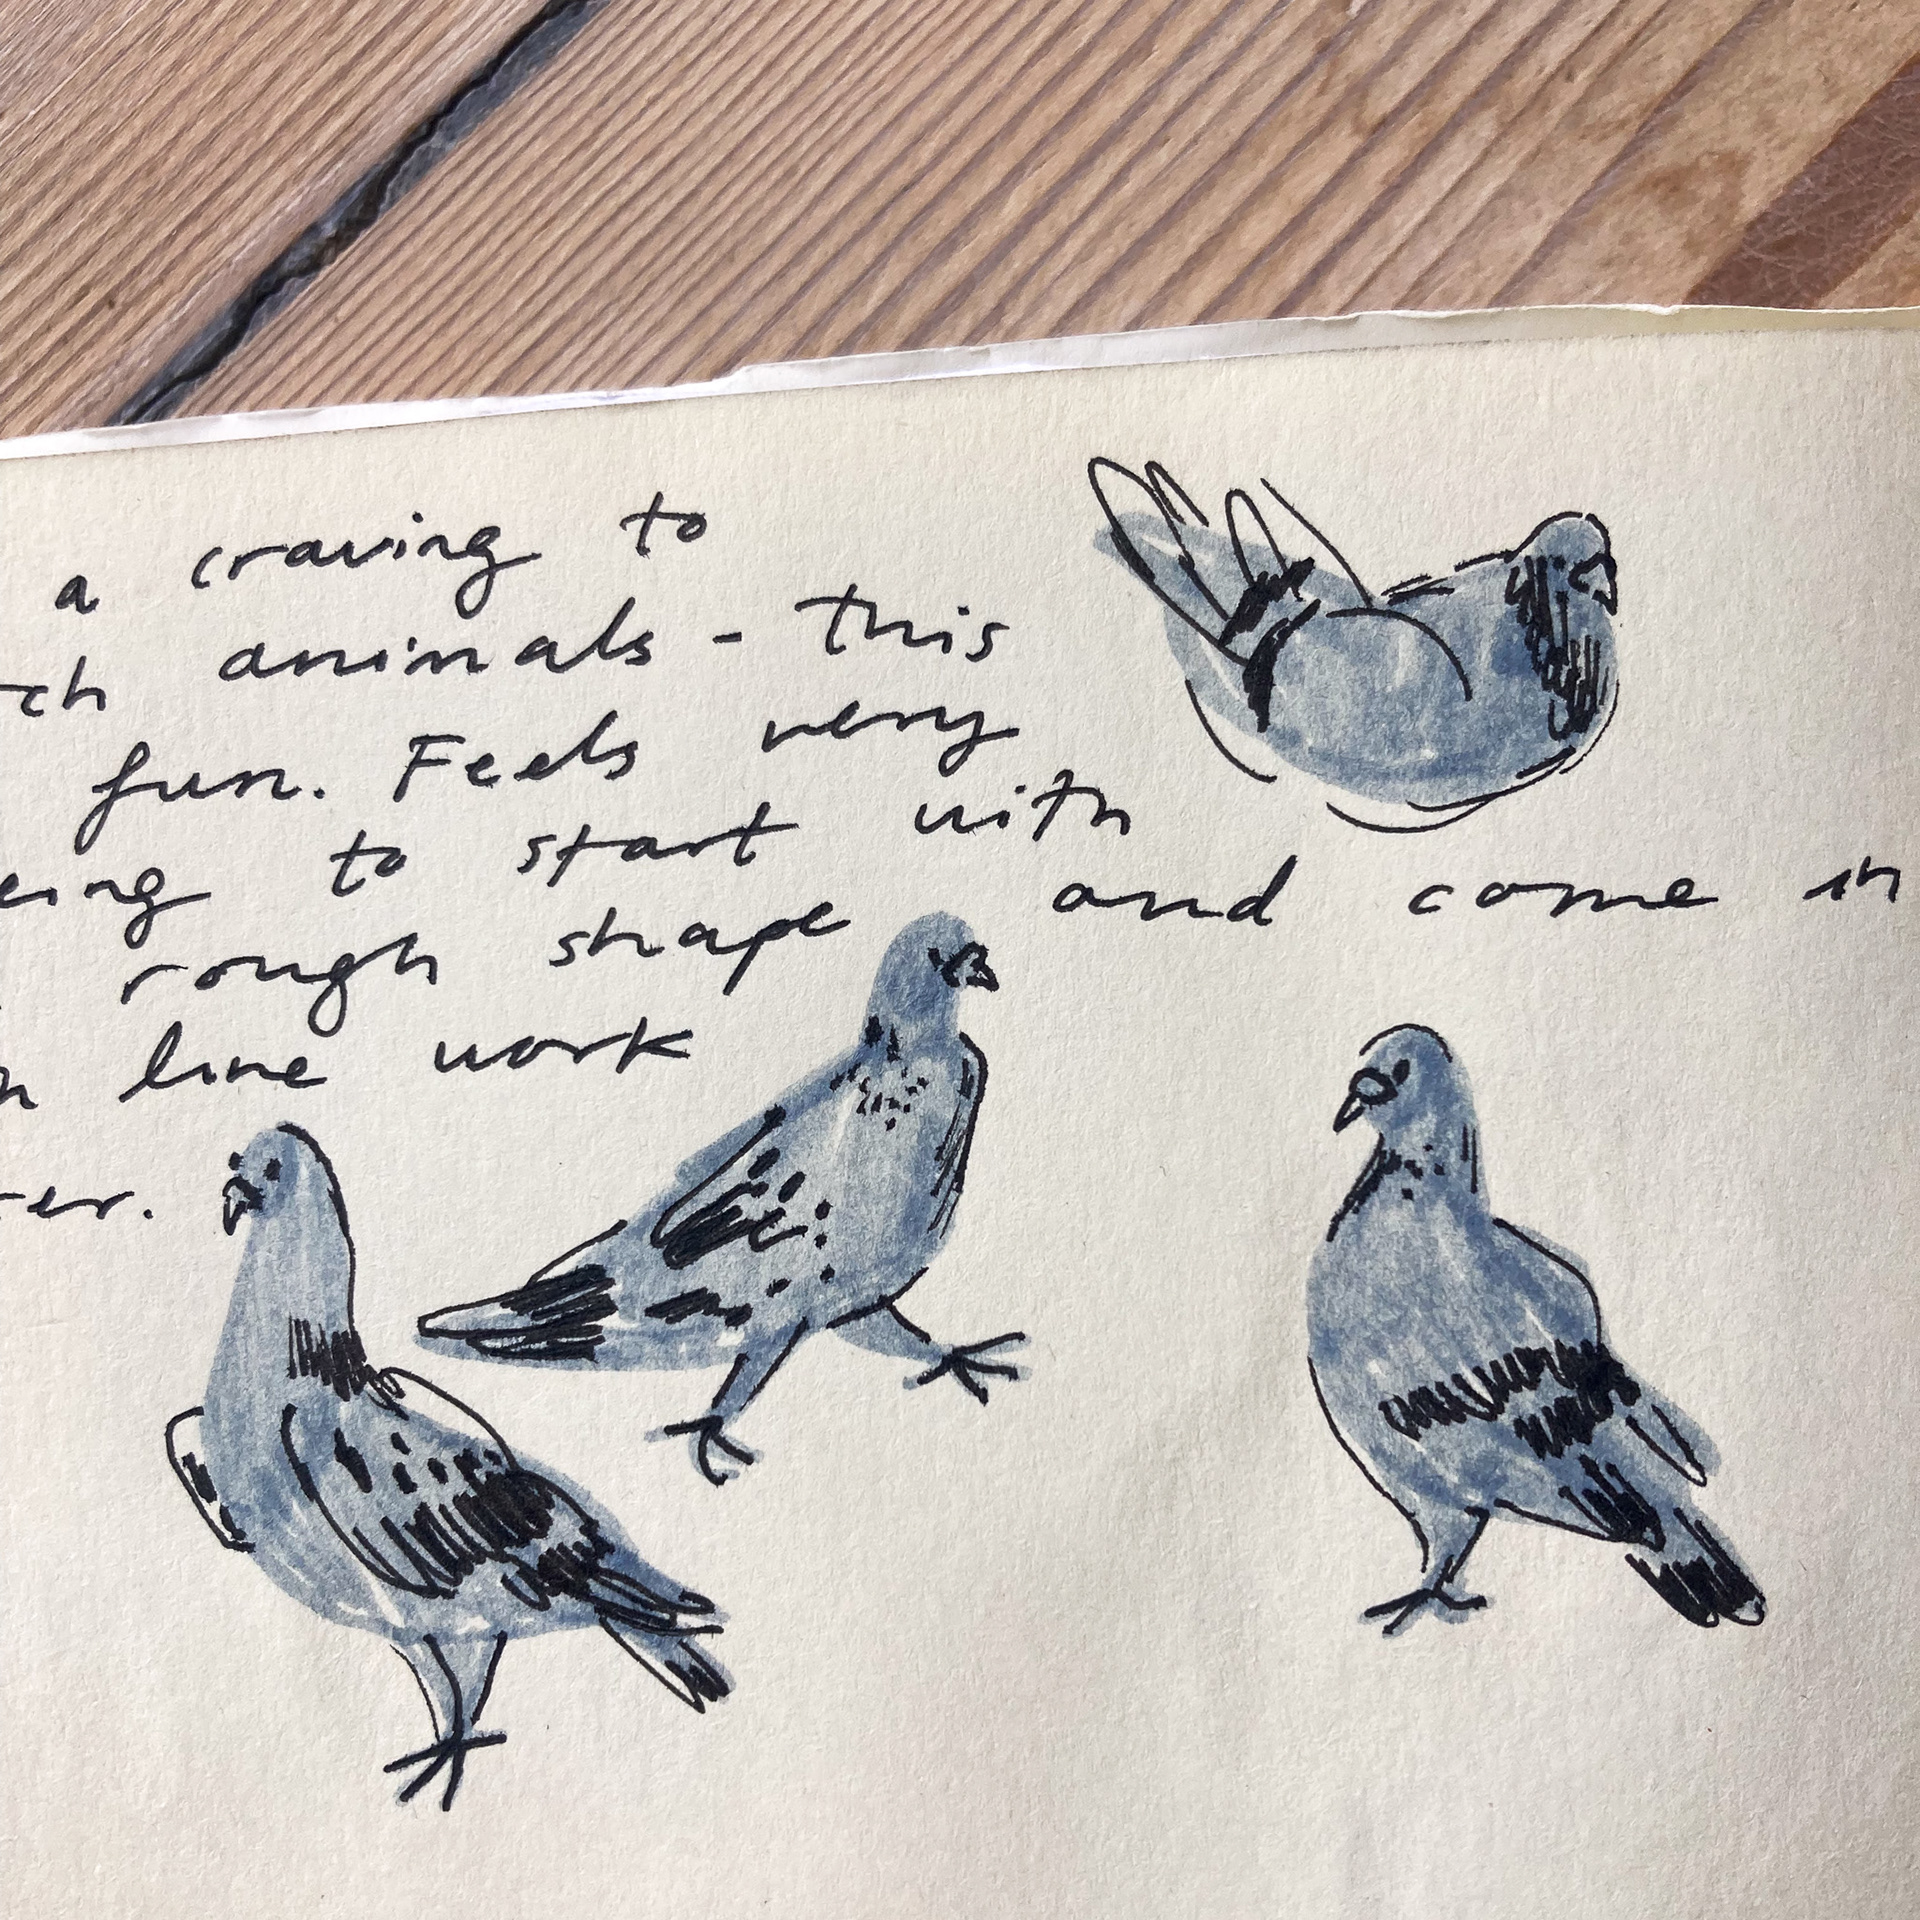 a craving to
ch animals - this
fun. Feels very
eing to start with
rough shape and come in
line work
ter.